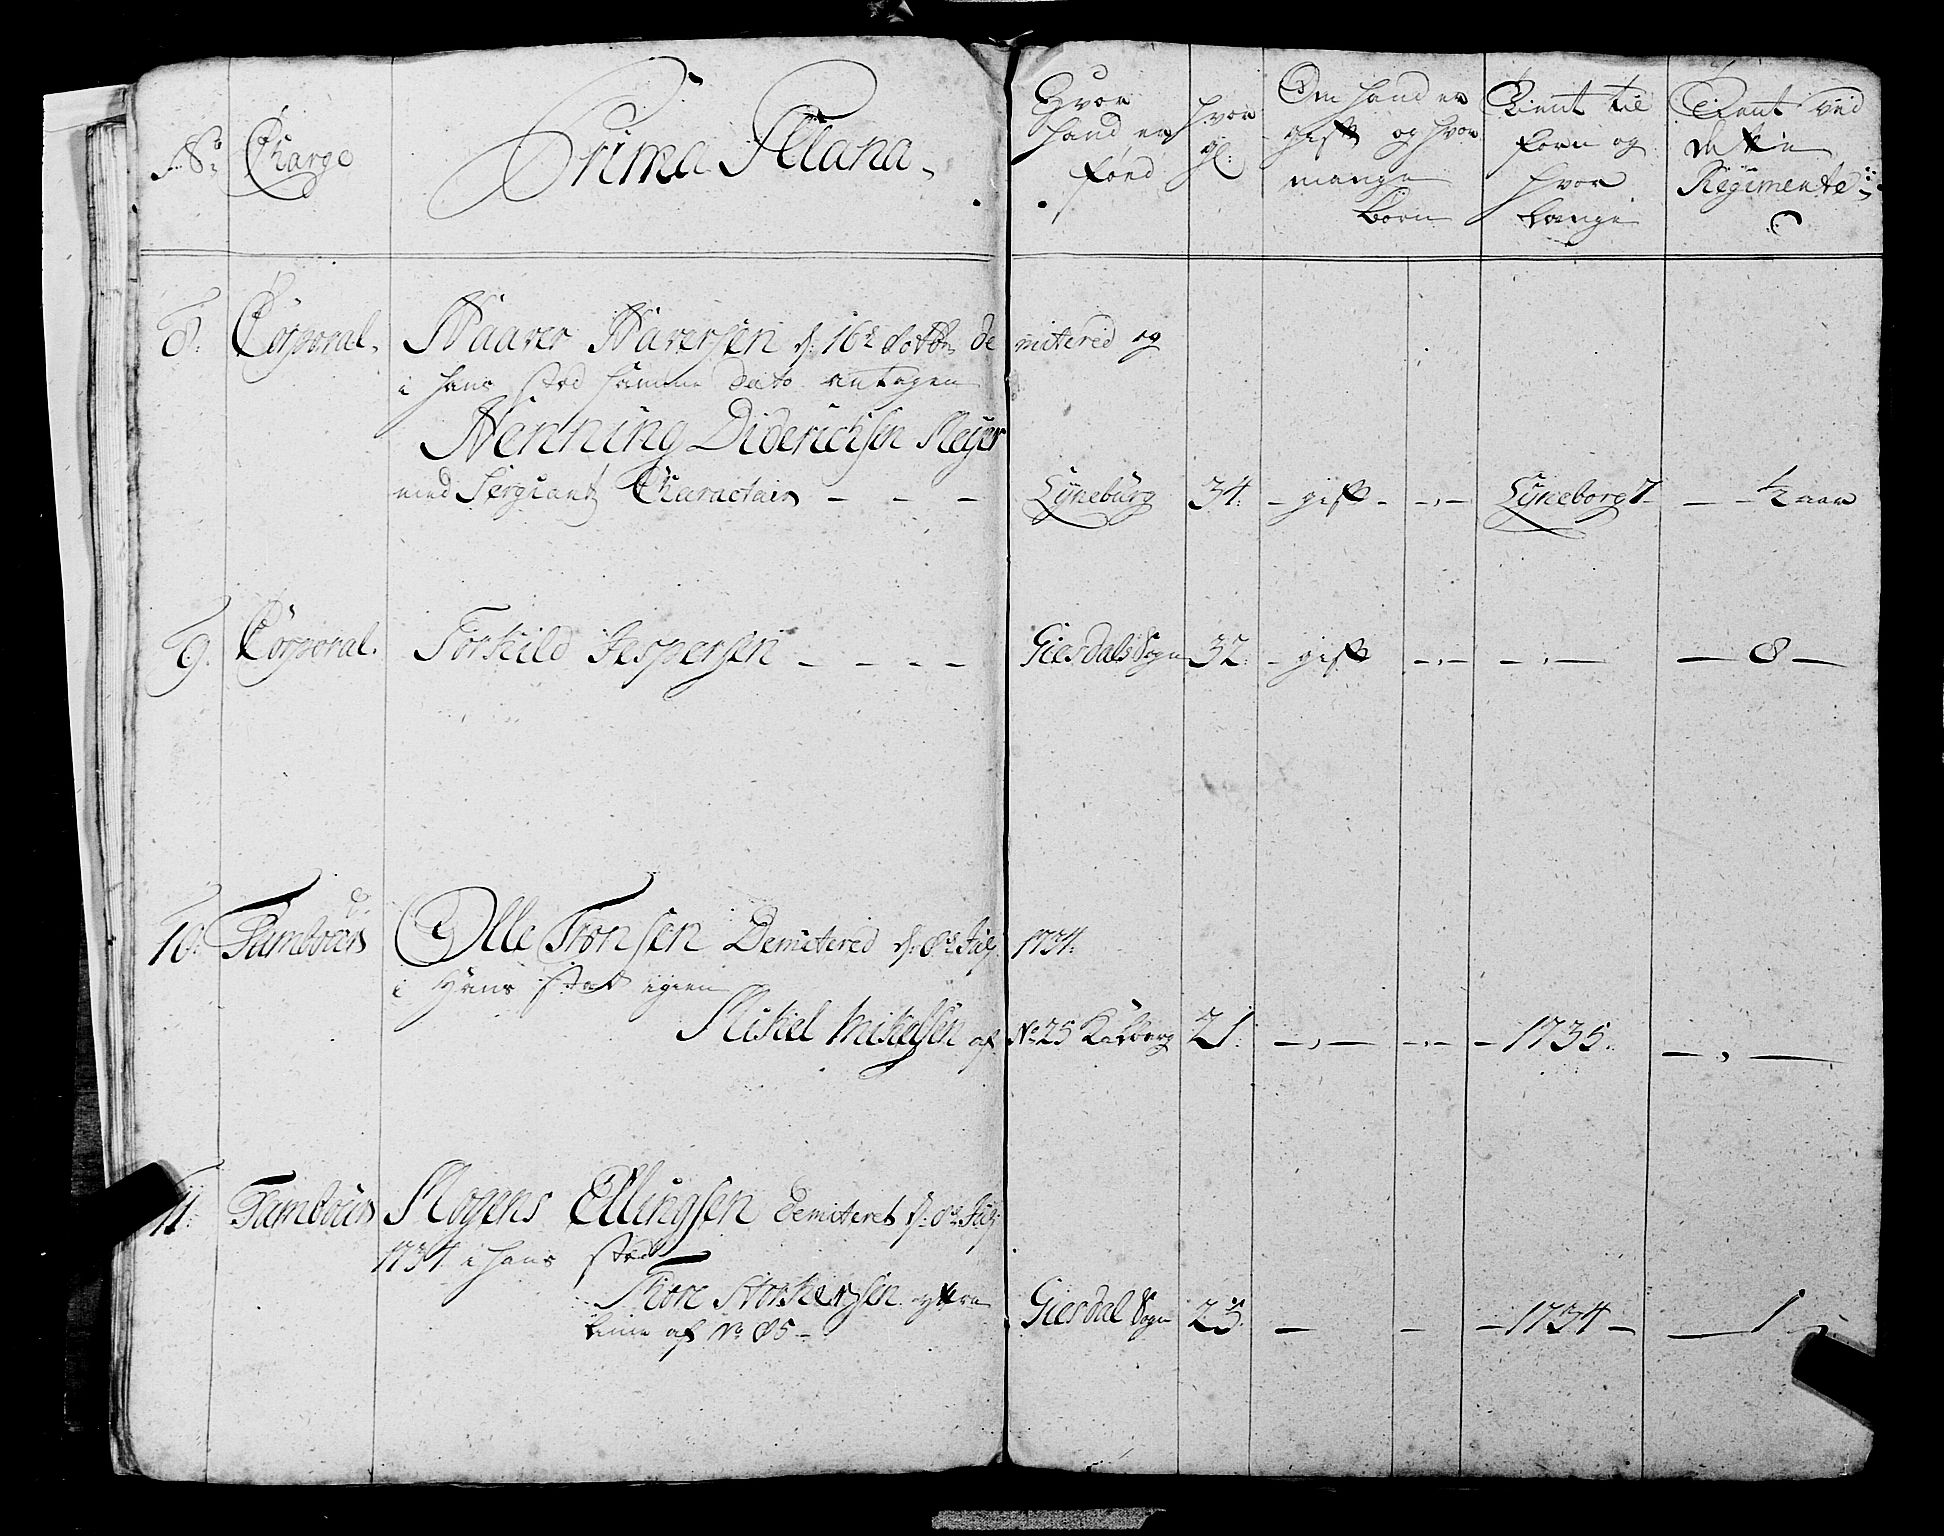 No Charge Prima Plana. Hvor hand er fönd hvor gl: Om hand er gift og hvor mange Börn Tient til forn og hvor Længe Tient ved dette Regimente
8. Corporal. Haaver Haversen d: 16de Octbr demitered og
i hans sted samme dato antagen
Henning Diderichsen Meyer
med Sergiants Charactair – – – Lyneburg 34: – gift – – Lyneborg 7 – – ½ aar
9. Corporal. Torkild Jespersen – – – – Giesdals Sogn 32: – gift – – – 8 –
10: Tambour Olle Tronsen Demitered d: 8de Julj 1734:
i Hans sted igien
Mikel Mikelsen af No 25 Kalberg 21: – – – 1735. –
11: Tambour Mogens Ellingsen demiteret d: 8de Julj
1734 i hans sted
Tore Storkersen yttre
Linie af No 85 – Giesdal Sogn 25. – – – 1734 – – 1